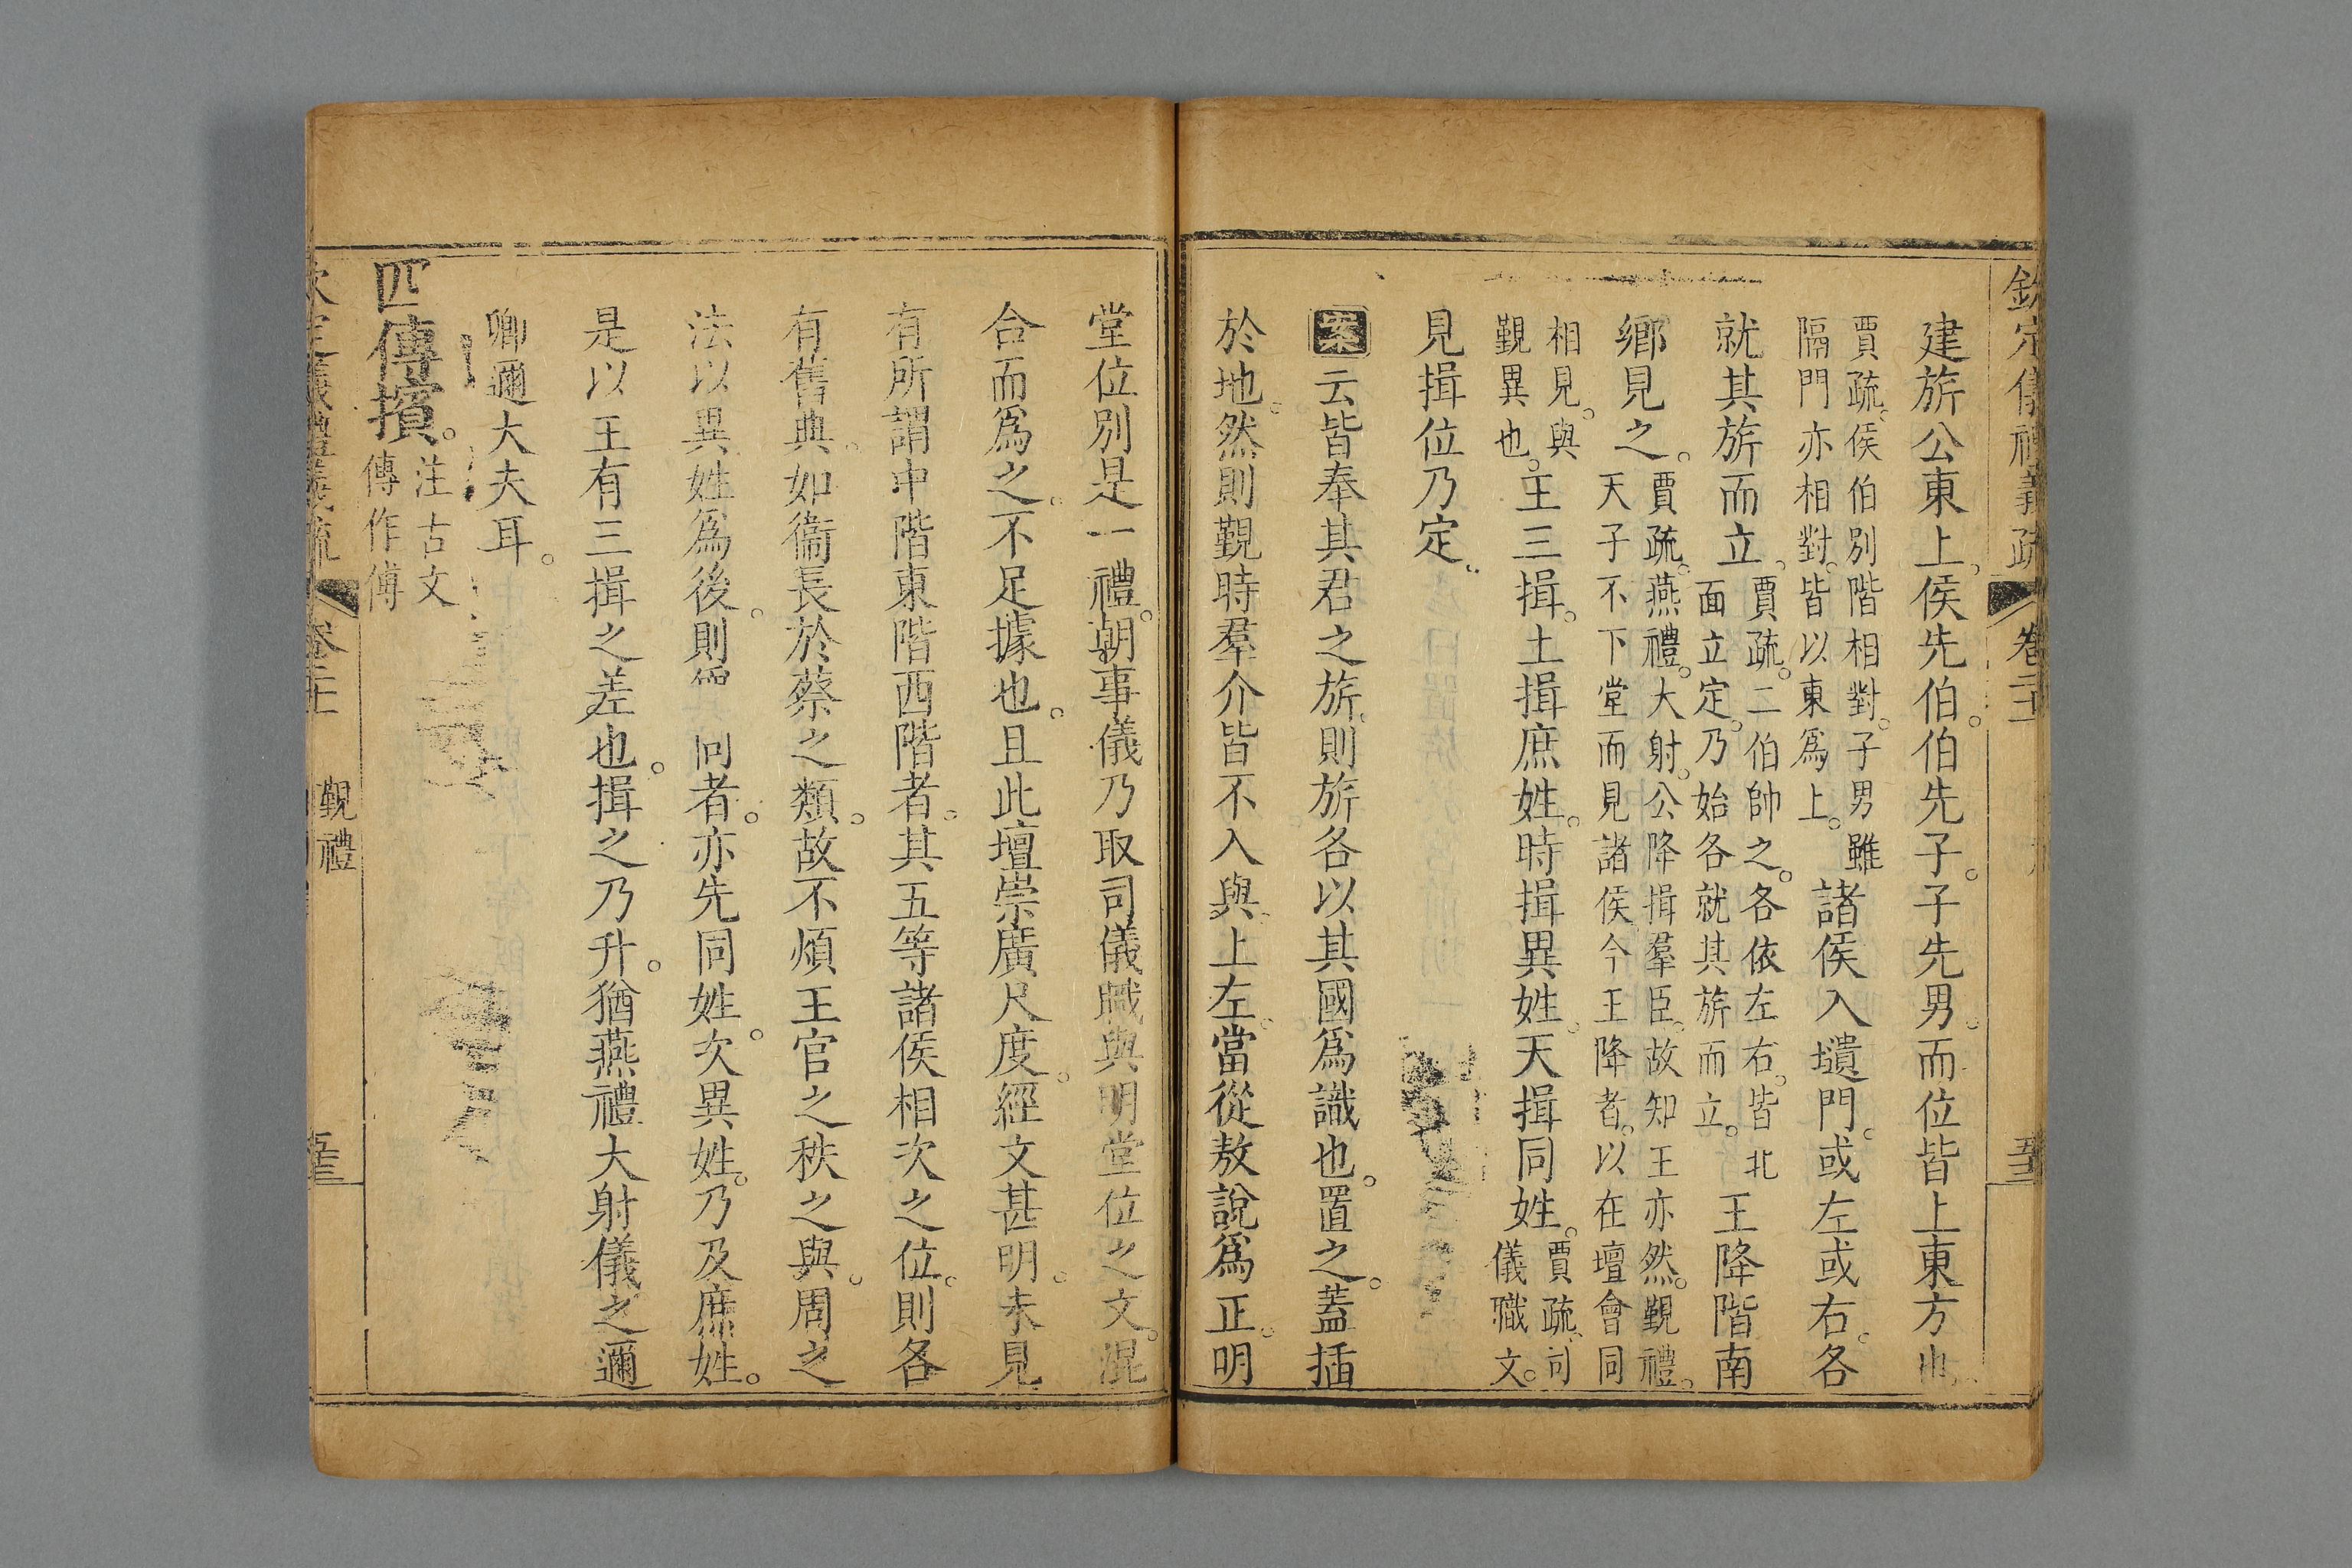 欽定儀禮義疏 卷二十 
建旂公東上侯先伯。伯先子。子先男。而位皆上東方也
賈疏侯伯別階相對。子男雖
隔門亦相對。皆以東爲上。
諸侯入壝門。或左或右。各
就其旂而立。
賈疏。二伯帥之。各依左右。皆北
面立定。乃始各就其旂而立。
王降階南
鄉見之。
賈疏。燕禮。大射。公降揖羣臣。故知王亦然。覲禮。
天子不下堂而見諸侯。今王降者。以在壇會同
相見。與
覲異也。
王三揖。土揖庶姓。時揖異姓。天揖同姓。
賈疏。司
儀職文。
見揖位乃定。
案云皆奉其君之旂。則旂各以其國爲識也。置之。蓋插
於地。然則覲時羣介皆不入與。上左。當從敖說爲正。明
堂位別是一禮。朝事儀乃取司儀職與明堂位之文。混
合而爲之。不足據也。且此壇崇廣尺度。經文甚明。未見
有所謂中階東階西階者。其五等諸侯相次之位。則各
有舊典。如衞長於蔡之類。故不煩王官之秩之與。周之
法以異姓爲後。則 同者。亦先同姓。次異姓。乃及庶姓。
是以王有三揖之差也。揖之乃升。猶燕禮大射儀之邇
卿邇大夫耳。
四傳擯。
注古文
傳作傅
覲禮